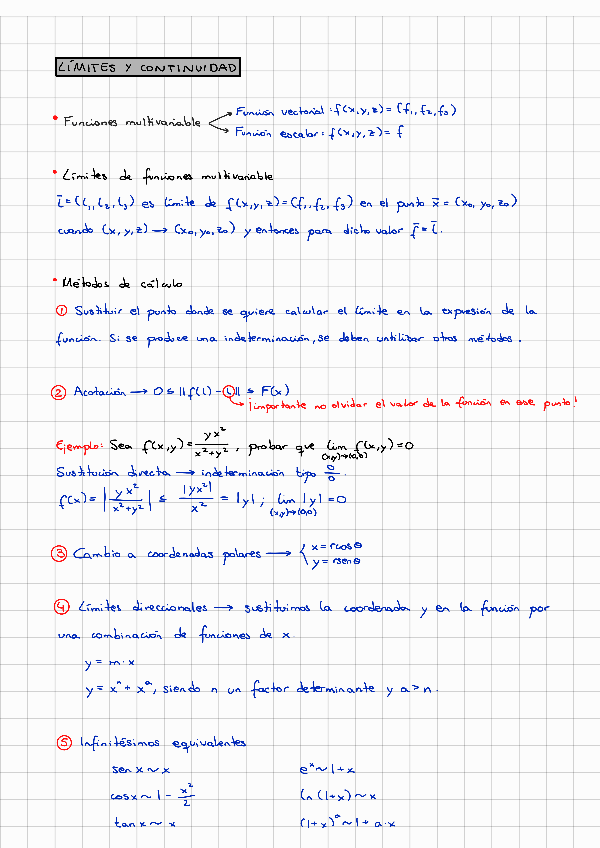 LÍMITES Y CONTINUIDAD
• Funciones multivariable
Función vectorial: f(x,y,z) = (f₁, f₂, f₃)
Función escalar: f(x,y,z) = f
• Límites de funciones multivariable
l̄ = (l₁, l₂, l₃) es límite de f(x,y,z) = (f₁, f₂, f₃) en el punto x̄ = (x₀, y₀, z₀)
cuando (x,y,z) → (x₀, y₀, z₀) y entonces para dicho valor f̄ = l̄.
• Métodos de cálculo
① Sustituir el punto donde se quiere calcular el límite en la expresión de la
función. Si se produce una indeterminación, se deben untilizar otros métodos.
② Acotación → 0 ≤ ||f(l) - L|| ≤ F(x)
¡importante no olvidar el valor de la función en ese punto!
Ejemplo: Sea f(x,y) = yx²/(x²+y²), probar que lim (x,y)→(0,0) f(x,y) = 0
Sustitución directa → indeterminación tipo 0/0.
f(x) = |yx²/(x²+y²)| ≤ |yx²|/x² = |y|; lim (x,y)→(0,0) |y| = 0
③ Cambio a coordenadas polares → { x = rcosθ
y = rsenθ
④ Límites direccionales → sustituimos la coordenada y en la función por
una combinación de funciones de x.
y = m·x
y = xⁿ + xᵃ, siendo n un factor determinante y a > n.
⑤ Infinitésimos equivalentes
sen x ~ x    eˣ ~ 1 + x
cos x ~ 1 - x²/2    ln (1+x) ~ x
tan x ~ x    (1+x)ᵃ ~ 1 + a·x